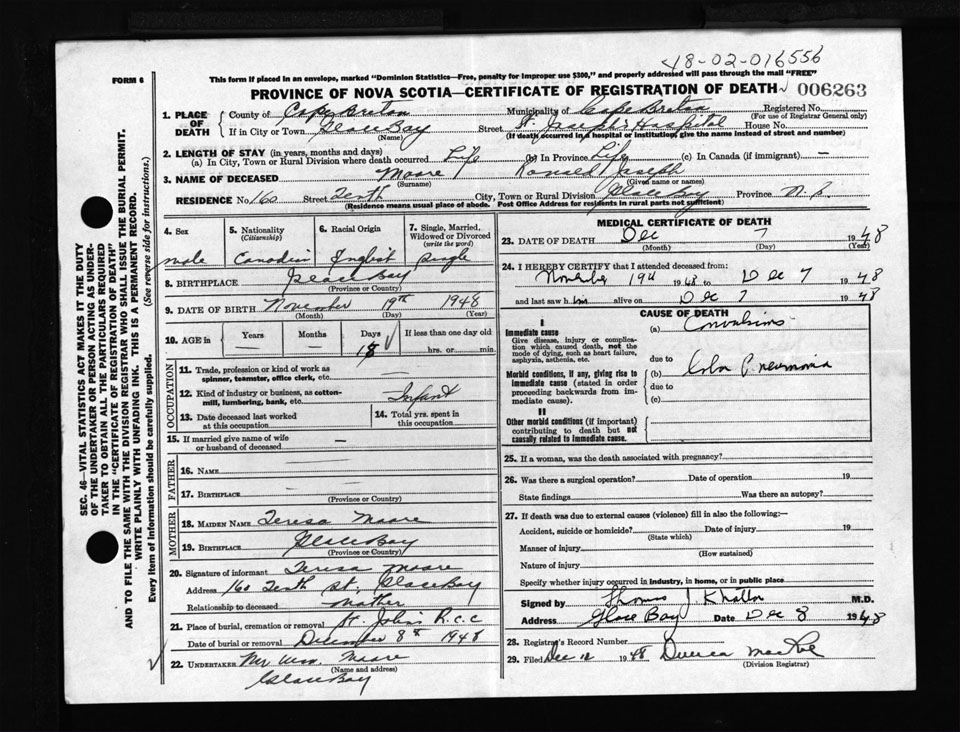 48-02-016556
FORM 6
This form if placed in an envelope, marked "Dominion Statistics—Free, penalty for improper use $300," and properly addressed will pass through the mail "FREE"
PROVINCE OF NOVA SCOTIA—CERTIFICATE OF REGISTRATION OF DEATH 006263
1. PLACE OF DEATH
County of Cape Breton Municipality of Cape Breton Registered No.
(For use of Registrar General only)
If in City or Town Glace Bay Street St. Joseph's Hospital House No.
(Name) (If death occurred in a hospital or institution, give the name instead of street and number)
2. LENGTH OF STAY (in years, months and days)
(a) In City, Town or Rural Division where death occurred Life (b) In Province Life (c) In Canada (if immigrant) —
3. NAME OF DECEASED Moore Ronald Joseph
(Surname) (Given name or names)
RESIDENCE No. 160 Street Tenth City, Town or Rural Division Glace Bay Province N.S.
(Residence means usual place of abode. Post Office Address for residents in rural parts not sufficient)
4. Sex
male
5. Nationality
(Citizenship)
Canadian
6. Racial Origin
English
7. Single, Married, Widowed or Divorced
(write the word)
Single
8. BIRTHPLACE Glace Bay
(Province or Country)
9. DATE OF BIRTH November 19th 1948
(Month) (Day) (Year)
10. AGE in Years — Months — Days 18 If less than one day old
hrs. or min.
OCCUPATION
11. Trade, profession or kind of work as
spinner, teamster, office clerk, etc.
12. Kind of industry or business, as cotton-
mill, lumbering, bank, etc. Infant
13. Date deceased last worked
at this occupation
14. Total yrs. spent in
this occupation
15. If married give name of wife
or husband of deceased —
FATHER
16. Name
17. Birthplace
(Province or Country)
MOTHER
18. Maiden Name Teresa Moore
19. Birthplace Glace Bay
(Province or Country)
20. Signature of informant Teresa Moore
Address 160 Tenth St. Glace Bay
Relationship to deceased Mother
21. Place of burial, cremation or removal St. John's R.C.C
Date of burial or removal December 8th 1948
22. UNDERTAKER Mr Wm. Moore
(Name and address)
Glace Bay
MEDICAL CERTIFICATE OF DEATH
23. DATE OF DEATH Dec 7 1948
(Month) (Day) (Year)
24. I HEREBY CERTIFY that I attended deceased from:
November 19th 1948 to Dec 7 1948
and last saw him alive on Dec 7 1948
CAUSE OF DEATH
I
Immediate cause
Give disease, injury or complication which caused death, not the mode of dying, such as heart failure, asphyxia, asthenia, etc.
(a) Convulsions
due to
Morbid conditions, if any, giving rise to immediate cause (stated in order proceeding backwards from immediate cause).
(b) Lobar Pneumonia
due to
(c)
II
Other morbid conditions (if important) contributing to death but not causally related to immediate cause.
25. If a woman, was the death associated with pregnancy?
26. Was there a surgical operation? Date of operation 19
State findings Was there an autopsy?
27. If death was due to external causes (violence) fill in also the following:—
Accident, suicide or homicide? Date of injury 19
(State which)
Manner of injury
(How sustained)
Nature of injury
Specify whether injury occurred in industry, in home, or in public place
Signed by Thomas J. M.D.
Address Glace Bay Date Dec 8 1948
28. Registrar's Record Number
29. Filed Dec 12 1948
(Division Registrar)
SEC. 46—VITAL STATISTICS ACT MAKES IT THE DUTY
OF THE UNDERTAKER OR PERSON ACTING AS UNDER-
TAKER TO OBTAIN ALL THE PARTICULARS REQUIRED
IN THE "CERTIFICATE OF REGISTRATION OF DEATH"
AND TO FILE THE SAME WITH THE DIVISION REGISTRAR WHO SHALL ISSUE THE BURIAL PERMIT.
WRITE PLAINLY WITH UNFADING INK. THIS IS A PERMANENT RECORD.
Every item of information should be carefully supplied. (See reverse side for instructions.)